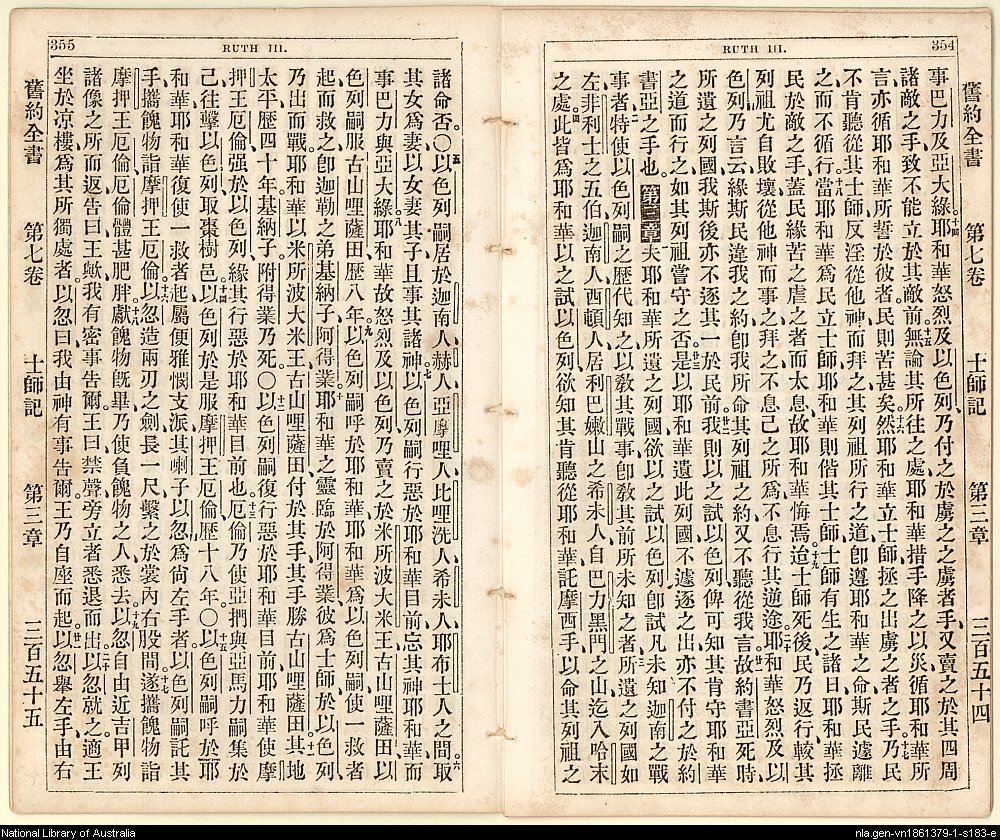 354
RUTH III.
舊約全書 第七卷 士師記 第三章 三百五十四
事巴力及亞大綠耶和華怒烈及以色列乃付之於虜之之虜者手又賣之於其四周
諸敵之手致不能立於其敵前無論其所往之處耶和華措手降之以災循耶和華所
言亦循耶和華所誓於彼者民則苦甚矣然耶和華立士師拯之出虜之者之手乃民
不肯聽從其士師反淫從他神而拜之其列祖所行之道卽遵耶和華之命斯民遽離
之而不循行當耶和華爲民立士師耶和華則偕其士師士師有生之諸日耶和華拯
民於敵之手蓋民緣苦之虐之者而太息故耶和華悔焉迨士師死後民乃返行較其
列祖尤自敗壞從他神而事之拜之不息己之所爲不息行其逆途耶和華怒烈及以
色列乃言云緣斯民違我之約卽我所命其列祖之約又不聽從我言故約書亞死時
所遺之列國我斯後亦不逐其一於民前我則以之試以色列俾可知其肯守耶和華
之道而行之如其列祖嘗守之否是以耶和華遺此列國不遽逐之出亦不付之於約
書亞之手也第三章夫耶和華所遺之列國欲以之試以色列卽試凡未知迦南之戰
事者特使以色列嗣之歷代知之以敎其戰事卽敎其前所未知之者所遺之列國如
左非利士之五伯迦南人西頓人居利巴嫩山之希未人自巴力黑門之山迄入哈末
之處此皆爲耶和華以之試以色列欲知其肯聽從耶和華託摩西手以命其列祖之
355
RUTH III.
諸命否〇以色列嗣居於迦南人赫人亞摩哩人比哩洗人希未人耶布士人之間取
其女爲妻以女妻其子且事其諸神以色列嗣行惡於耶和華目前忘其神耶和華而
事巴力與亞大綠耶和華故怒烈及以色列乃賣之於米所波大米王古山哩薩田以
色列嗣服古山哩薩田歷八年以色列嗣呼於耶和華耶和華爲以色列嗣使一救者
起而救之卽迦勒之弟基納子阿得業耶和華之靈臨於阿得業彼爲士師於以色列
乃出而戰耶和華以米所波大米王古山哩薩田付於其手其手勝古山哩薩田其地
太平歷四十年基納子附得業乃死〇以色列嗣復行惡於耶和華目前耶和華使摩
押王厄倫强於以色列緣其行惡於耶和華目前也厄倫乃使亞捫與亞馬力嗣集於
己往擊以色列取棗樹邑以色列於是服摩押王厄倫歷十八年〇以色列嗣呼於耶
和華耶和華復使一救者起屬便雅憫支派其喇子以忽爲尙左手者以色列嗣託其
手攜餽物詣摩押王厄倫以忽造兩刃之劍長一尺繫之於裳內右股間遂攜餽物詣
摩押王厄倫厄倫體甚肥胖獻餽物旣畢乃使負餽物之人悉去以忽自由近吉甲列
諸像之所而返告曰王歟我有密事告爾王曰禁聲旁立者悉退而出以忽就之適王
坐於凉樓爲其所獨處者以忽曰我由神有事告爾王乃自座而起以忽舉左手由右
舊約全書 第七卷 士師記 第三章 三百五十五
National Library of Australia
nla.gen-vn1861379-1-s183-e